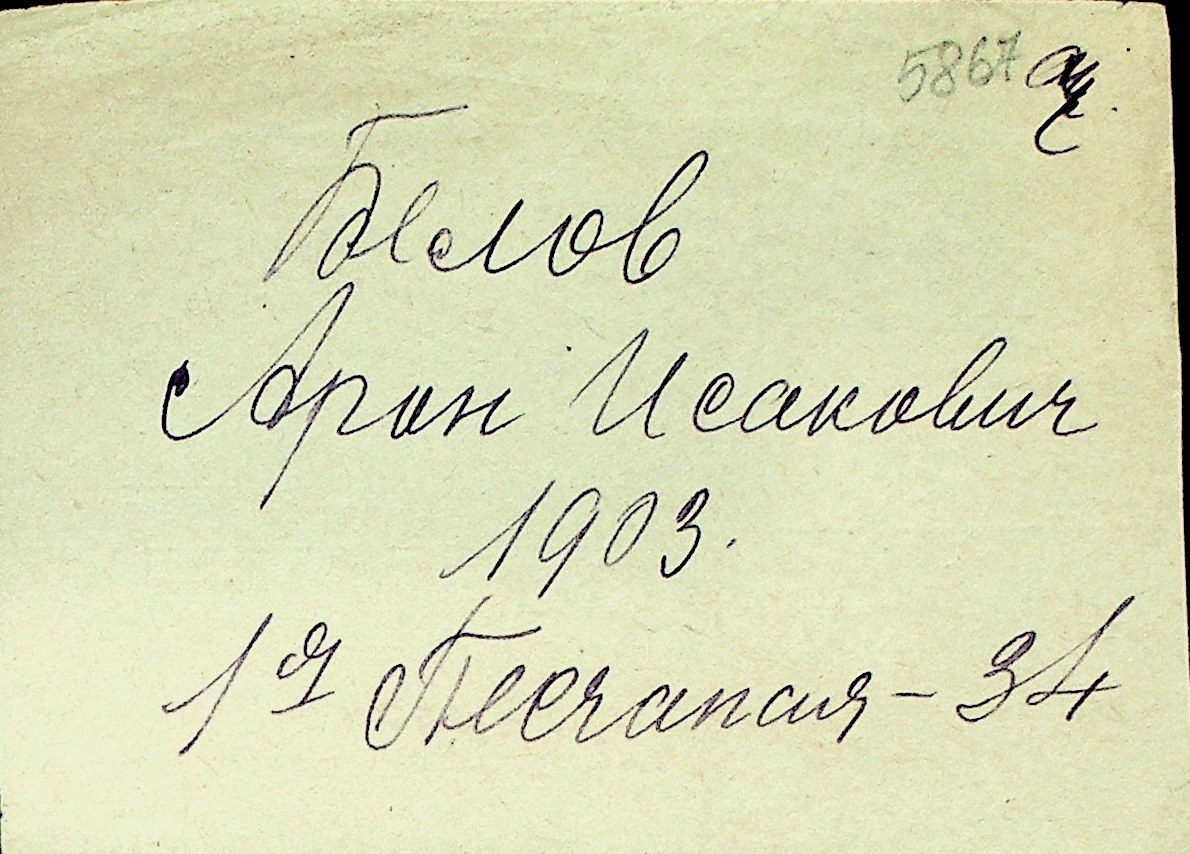 5867
Белов
Арон Исакович
1903.
1я Песчаная – 34